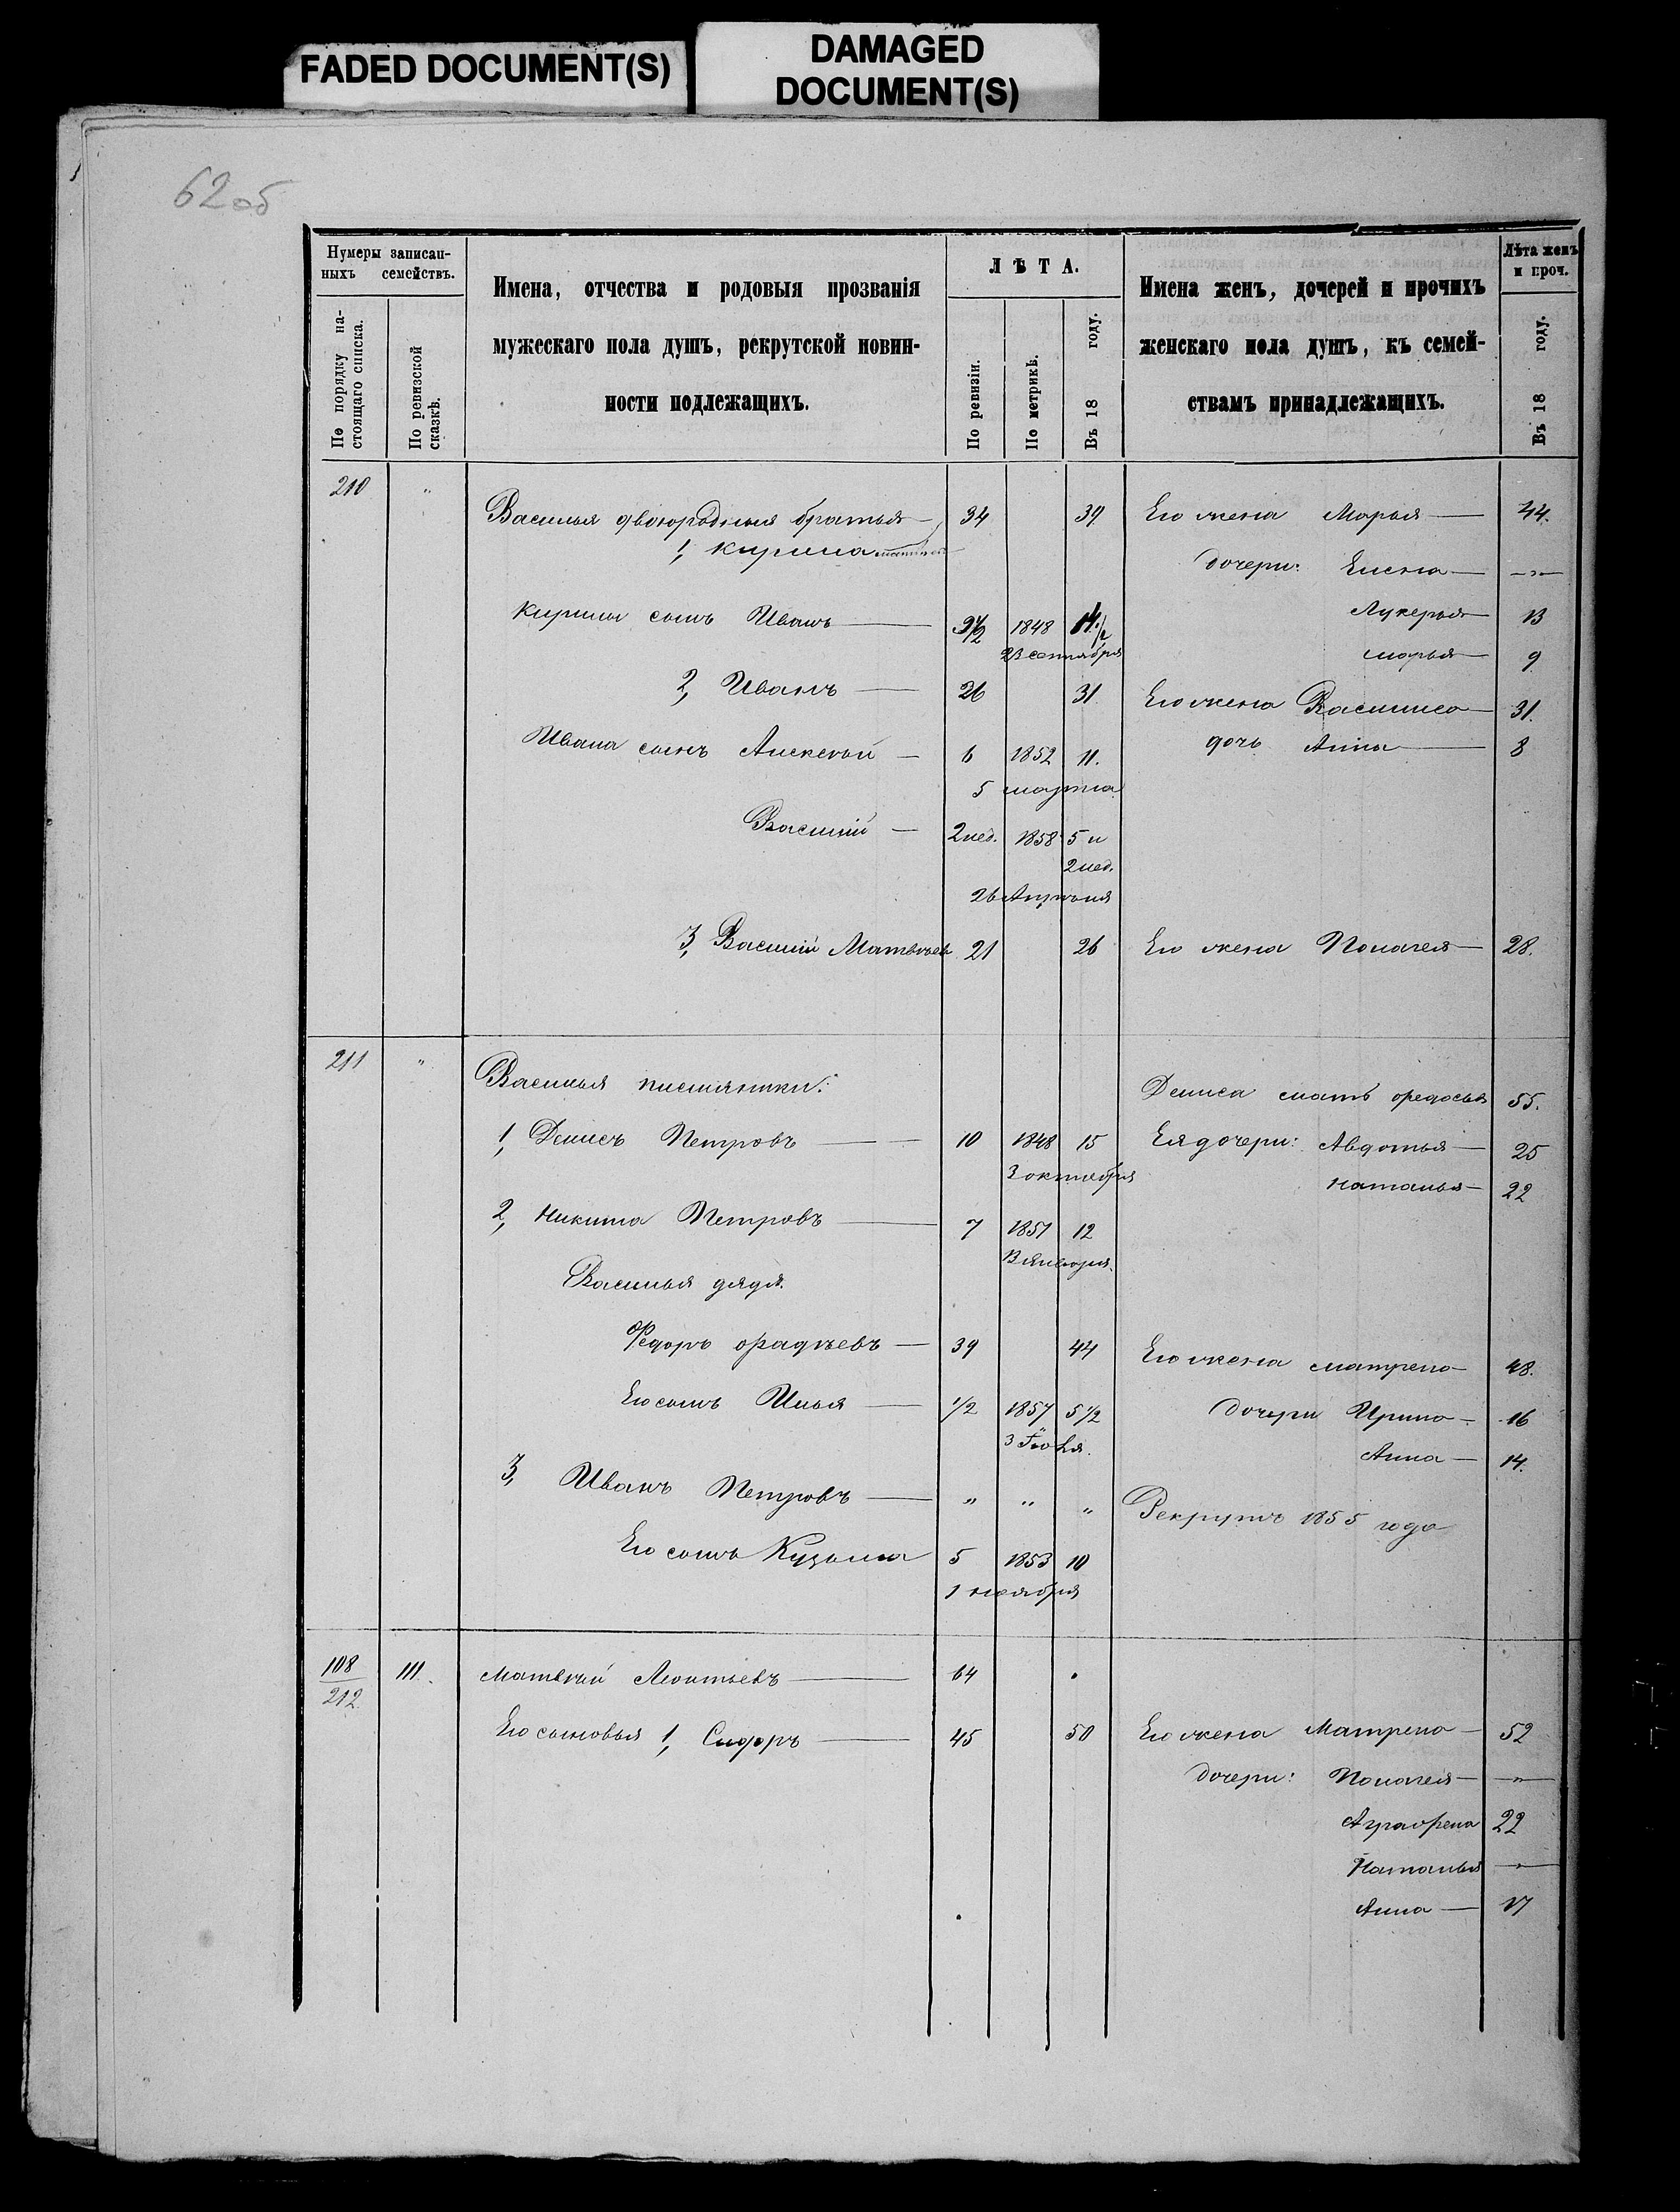 FADED DOCUMENT(S)
DAMAGED
DOCUMENT(S)
62об
Нумеры записан-
ныхъ семействъ.
По порядку на-
стоящаго списка.
По ревизской
сказкѣ.
Имена, отчества и родовыя прозванія
мужескаго пола душъ, рекрутской повин-
ности подлежащихъ.
ЛѢТА.
По ревизіи.
По метрикѣ.
Въ 18 году.
Имена женъ, дочерей и прочихъ
женскаго пола душъ, къ семей-
ствамъ принадлежащихъ.
Лѣта женъ
и проч.
Въ 18 году.
210 " Василья двоюродныя братья 34 39 Его жена Марья 44.
1, Кирила
дочери: Елена "
Кирилы сынъ Иванъ 9½ 1848 14½ Лукерья 13
23 сентября Марья 9
2, Иванъ 26 31 Его жена Василиса 31.
Ивана сынъ Алексѣй 6 1852 11. дочь Анна 8
5 марта
Василій 2 нед. 1858 5 и
2 нед.
26 Апрѣля
3, Василій Матвѣевъ 21 26 Его жена Пелагея 28.
211 " Василья племяники:
Дениса мать Федосья 55.
1, Денисъ Петровъ 10 1848 15 Ея дочери: Авдотья 25
3 октября Наталья 22
2, Никита Петровъ 7 1851 12
13 января.
Василья дядя.
Федоръ Фадѣевъ 39 44 Его жена Матрена 48.
Его сынъ Илья ½ 1857 5½ дочери Ирина 16
3 Іюля. Анна 14.
3, Иванъ Петровъ " " " Рекрутъ 1855 года
Его сынъ Кузьма 5 1853 10
1 ноября
108
212 111. Матвѣй Леонтьевъ 64
Его сыновья 1, Сидоръ 45 50 Его жена Матрена 52
дочери: Пелагея "
Аграфена 22
Наталья "
Анна 17